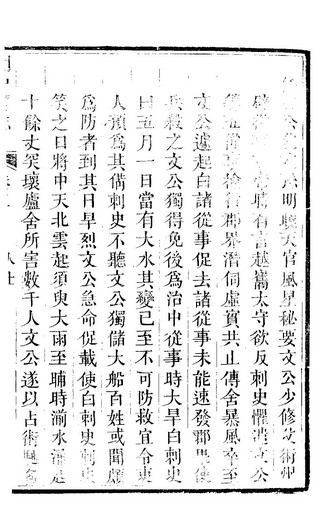 明曉天官風星秘要文公少修父術州
辟時有言越嶲太守欲反刺史懼遣文公
等五從事檢行郡界潛伺虛實共止傳舍暴風卒至
文公遽起白諸從事促去諸從事未能速發郡果使
兵殺之文公獨得免後爲治中從事時大旱白刺史
曰五月一日當有大水其變已至不可防救宜令吏
人預爲其備刺史不聽文公獨儲大船百姓或聞頗
爲防者到其日旱烈文公急命促載使白刺史刺史
笑之日將中天北雲起須臾大雨至晡時湔水涌起
十餘丈突壞廬舍所害數千人文公遂以占術馳名